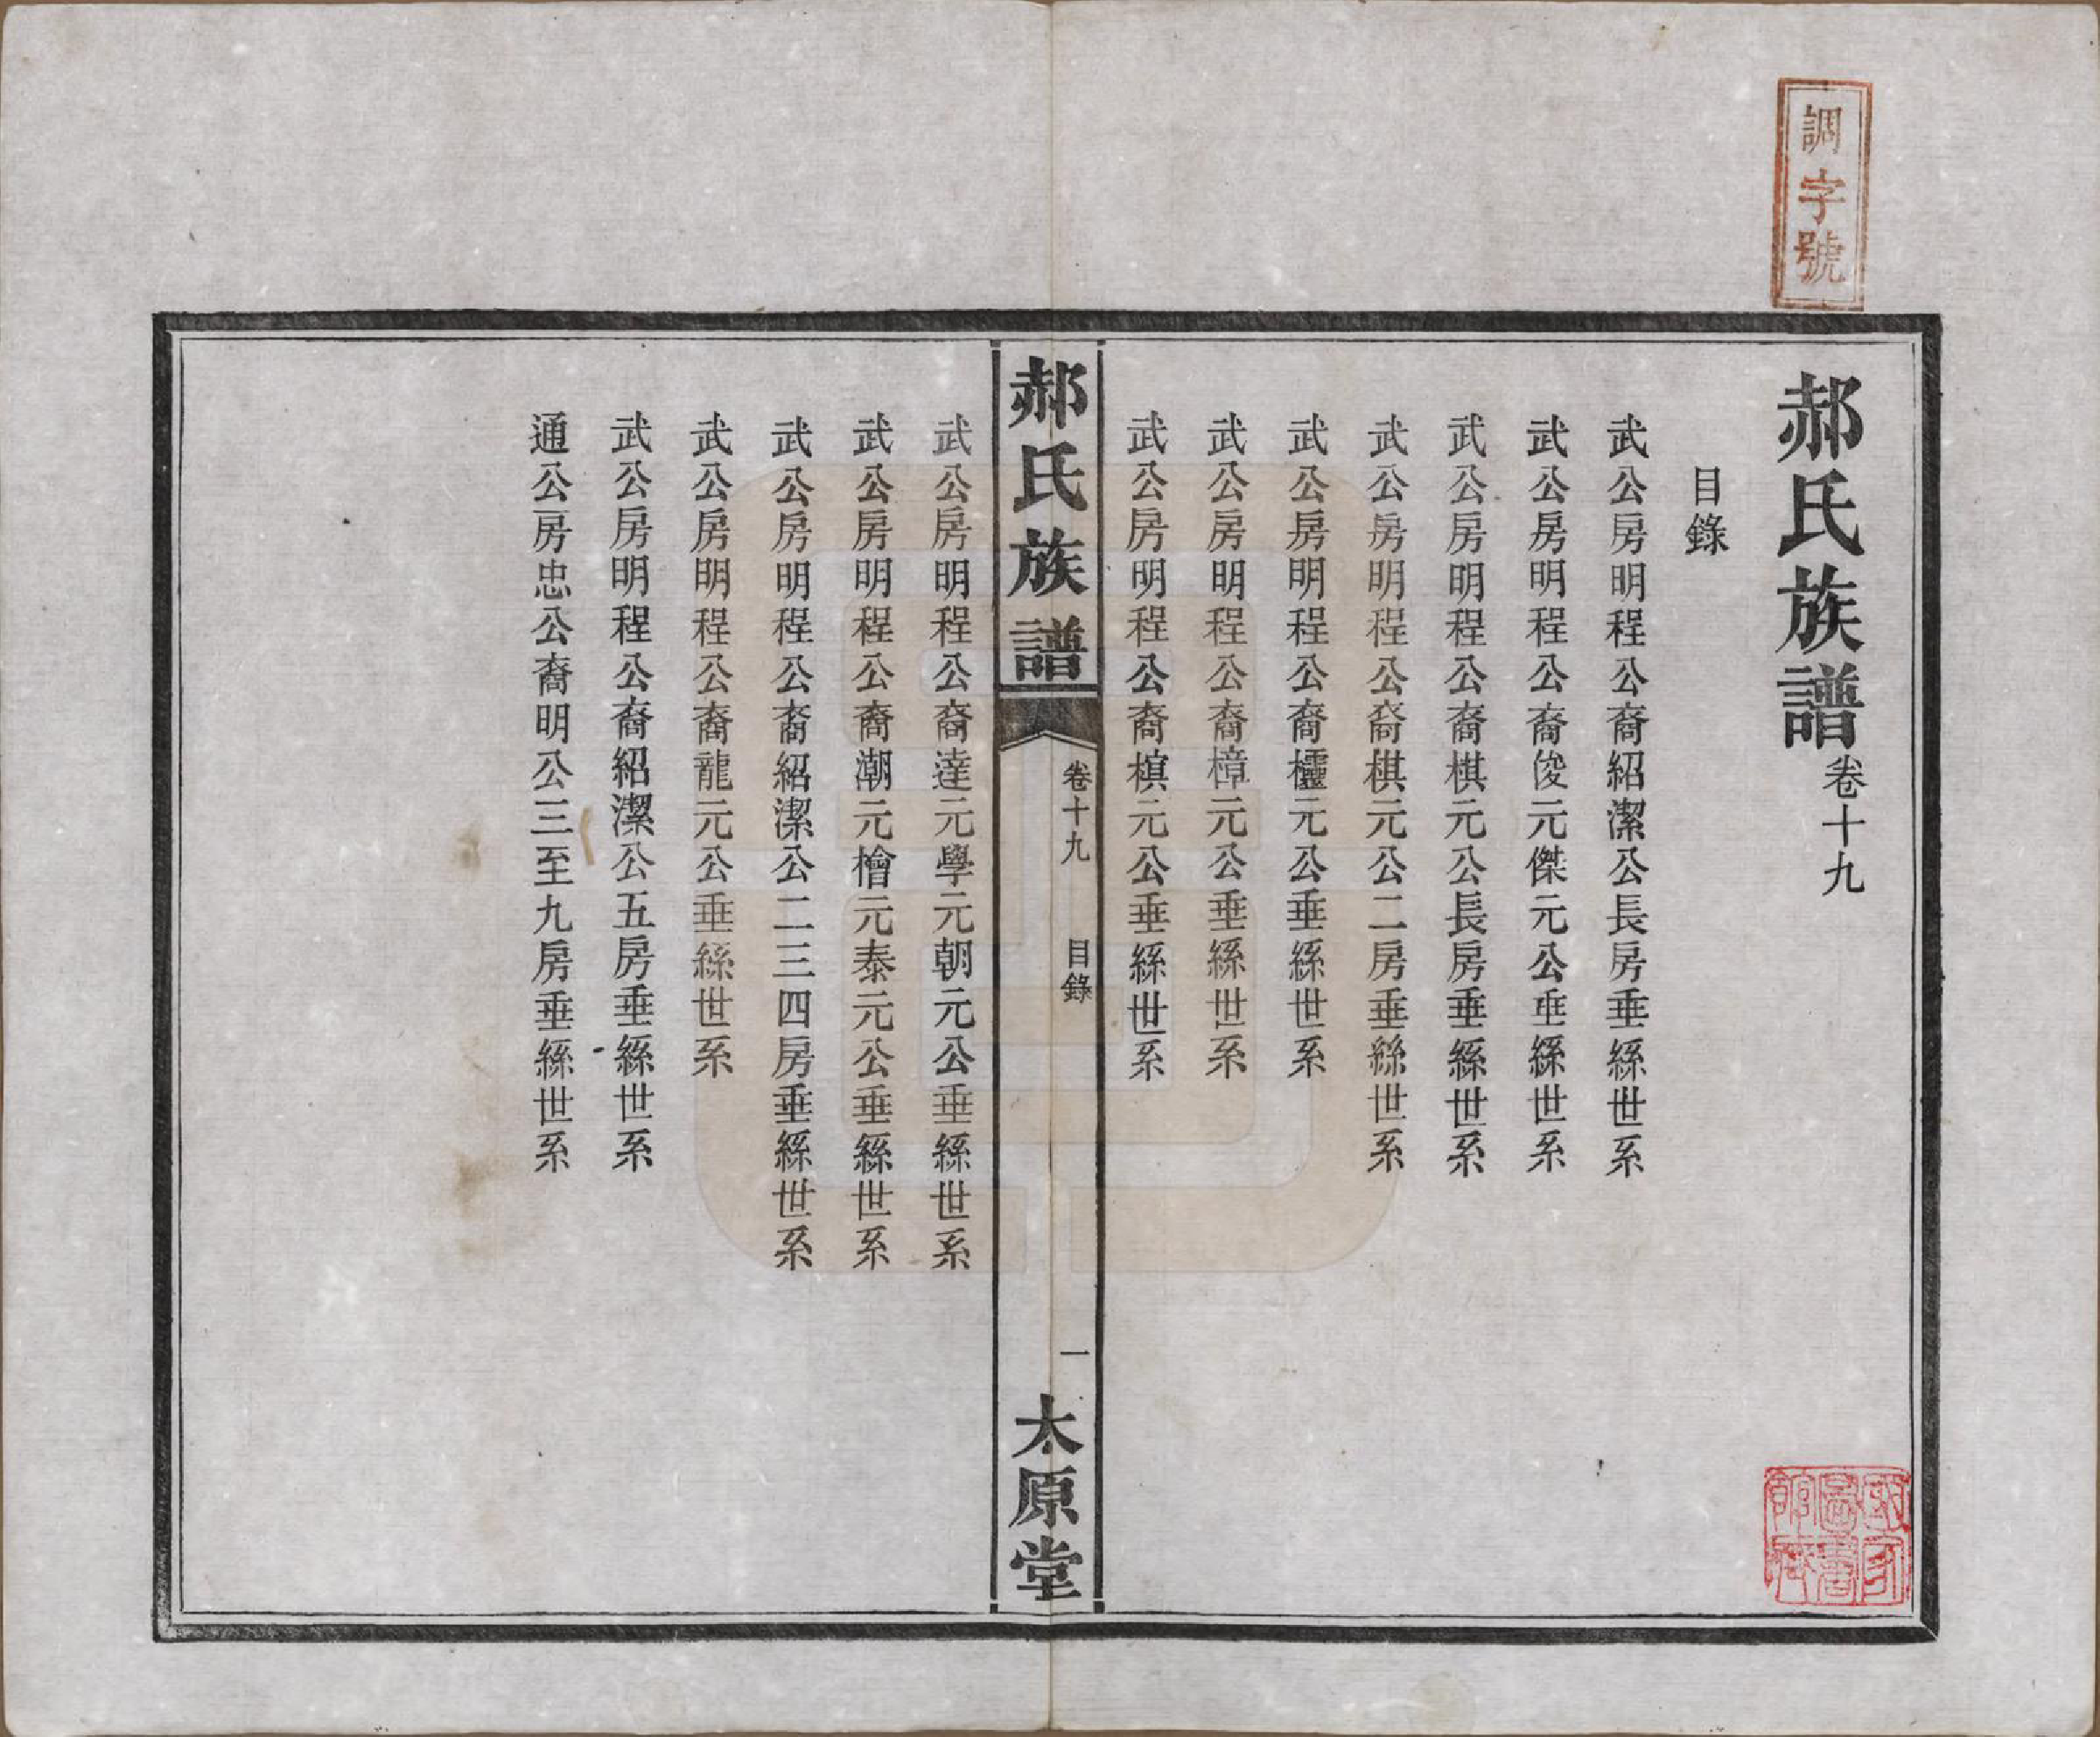 調字號
郝氏族譜卷十九
目錄
武公房明程公裔紹潔公長房垂絲世系
武公房明程公裔俊元傑元公垂絲世系
武公房明程公裔棋元公長房垂絲世系
武公房明程公裔棋元公二房垂絲世系
武公房明程公裔櫺元公垂絲世系
武公房明程公裔樟元公垂絲世系
武公房明程公裔槙元公垂絲世系
郝氏族譜
卷十九
目錄
一
太原堂
武公房明程公裔達元學元朝元公垂絲世系
武公房明程公裔潮元檜元泰元公垂絲世系
武公房明程公裔紹潔公二三四房垂絲世系
武公房明程公裔龍元公垂絲世系
武公房明程公裔紹潔公五房垂絲世系
通公房忠公裔明公三至九房垂絲世系
國家
圖書
館藏